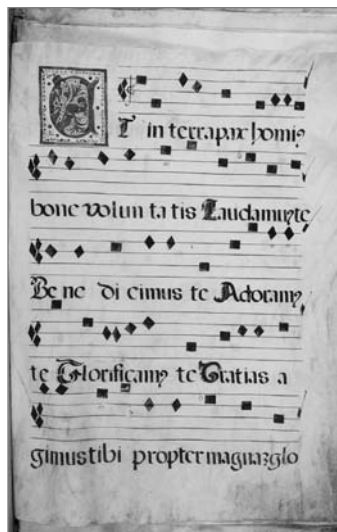 Et in terra pax homiꝰ
bone volun ta tis Laudamuꝰ te
Be ne di cimus te Adoramꝰ
te Glorificamꝰ te Gratias a
gimus tibi propter magnaꝫ glo